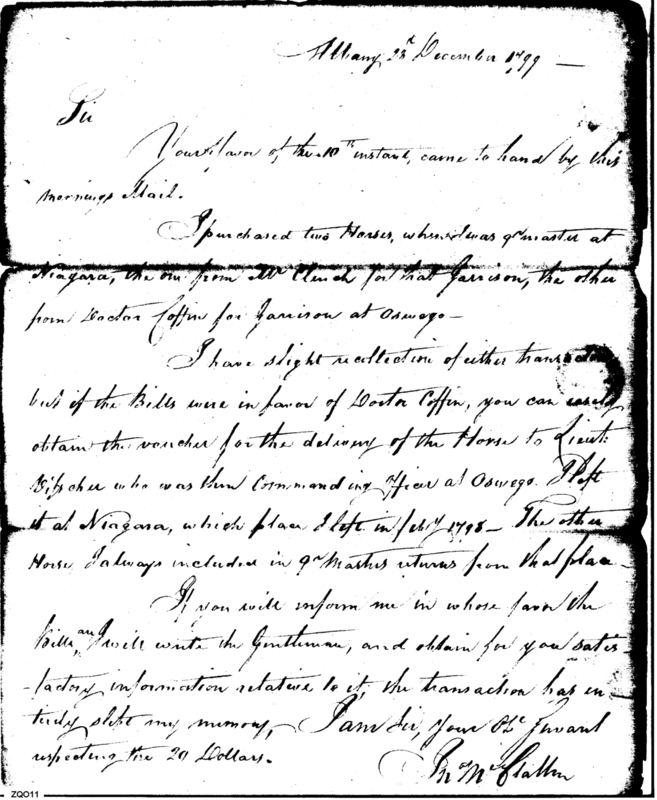 Albany 28th December 1799 —
Sir
Your favor of the 10th instant, came to hand by this
mornings Mail.
I purchased two Horses, when I was qr master at
Niagara, the one from Mr Clench for that Garrison, the other
from Doctor Coffin for Garrison at Oswego —
I have slight recollection of either transaction
but if the Bills were in favor of Doctor Coffin, you can easily
obtain the voucher for the delivery of the Horse to Lieut:
Visscher who was then Commanding officer at Oswego. I left
it at Niagara, which place I left in feby 1798 — The other
Horse I always included in qr Masters returns from that place —
If you will inform me in whose favor the
Bills are I will write the Gentleman, and obtain for you satis
-factory information relative to it, the transaction has en
tirely slipt my memory, — I am Sir, your Obt Servant
respecting the 20 Dollars.
Mc Clallen
ZQ011